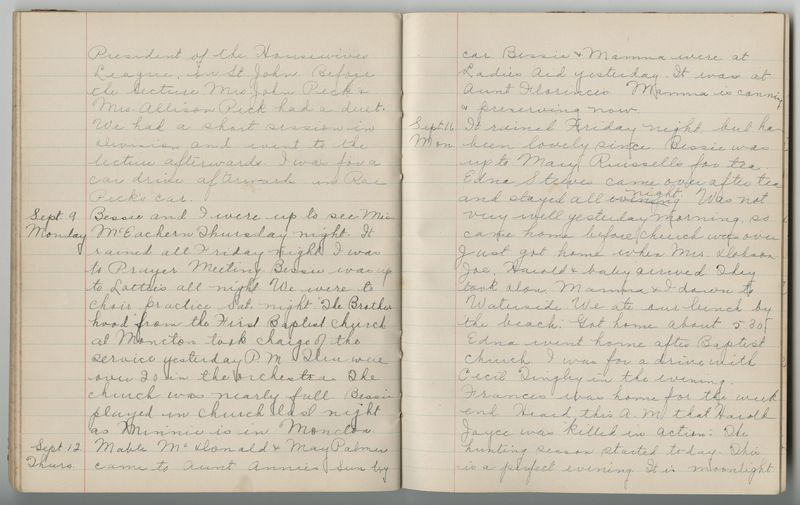 President of the Housewives
League, in St John. Before
the lecture Mrs John Peck &
Mrs Allison Peck had a duet.
We had a short session in
Division and went to the
lecture afterwards. I was for a
car drive afterward in Rae
Peck's car.
Sept. 9 Bessie and I were up to see Mrs
Monday McEachern Thursday night. It
rained all Friday night. I was
to Prayer Meeting. Bessie was up
to Lottie's all night. We were to
choir practice Sat. night. "The Brother
hood" from the First Baptist Church
at Moncton took charge of the
service yesterday P.M. There were
over 20 in the orchestra. The
church was nearly full. Bessie
played in church last night
as Minnie is in Moncton.
Sept 12 Mable McDonald & May Palmer
Thurs. came to Aunt Annie's Sun by
car. Bessie & Mamma were at
Ladies Aid yesterday. It was at
Aunt Florence's. Mamma is canning
& preserving now.
Sept. 16 It rained Friday night but has
Mon. been lovely since. Bessie was
up to Mary Russell's for tea.
Edna Steeves came over after tea
and stayed all evening night. Was not
very well yesterday morning, so
came home before church was over.
Just got home when Mrs. Dobson
Joe, Harold & baby arrived. They
took Don, Mamma & I down to
Waterside. We ate our lunch by
the beach. Got home about 5.30.
Edna went home after Baptist
church. I was for a drive with
Cecil Tingley in the evening.
Frances was home for the week
end. Heard this A.M. that Harold
Joyce was killed in action. The
hunting season started to-day. This
is a perfect evening. It is moonlight